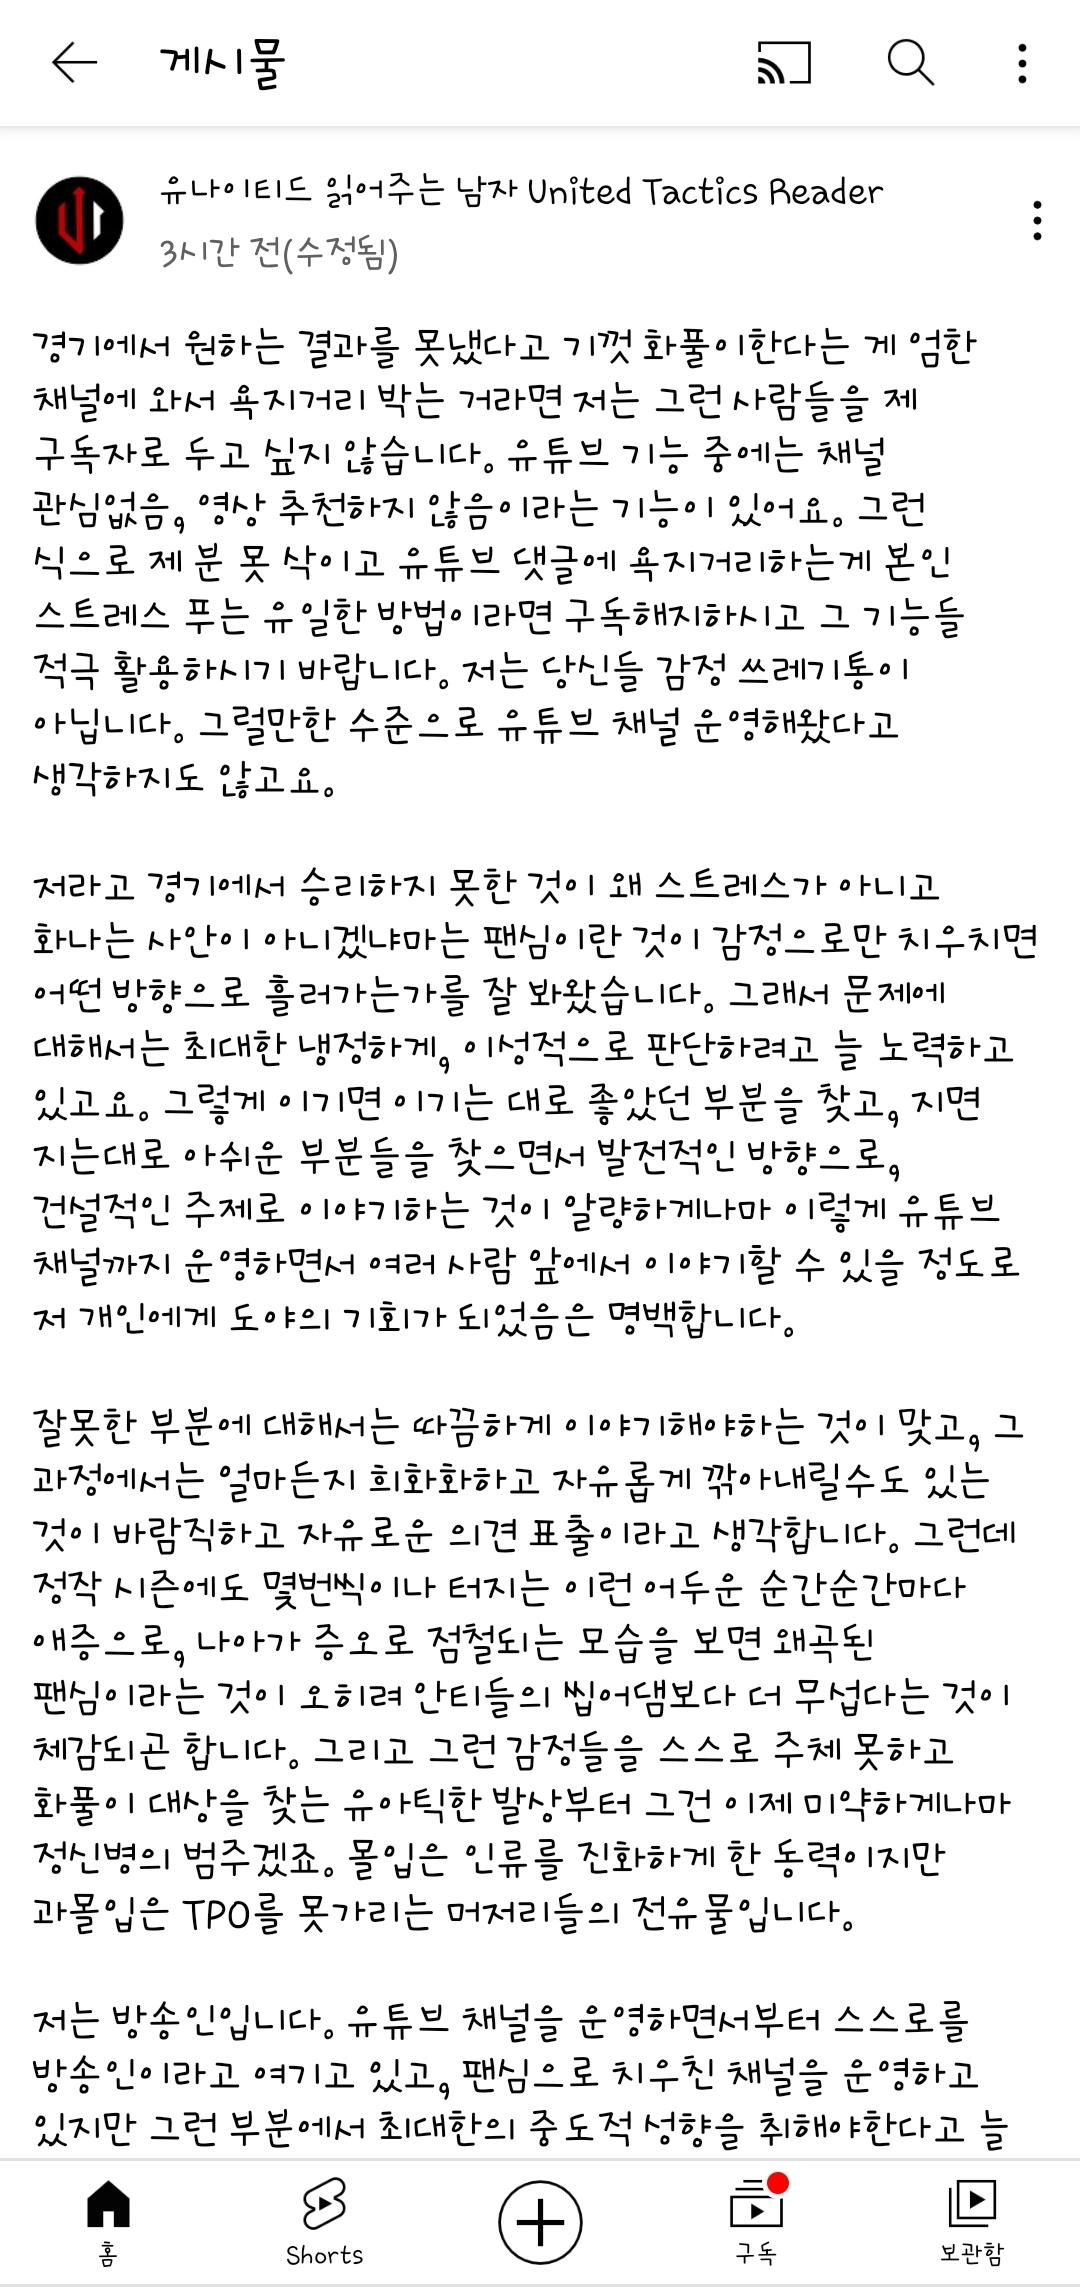 게시물
유나이티드 읽어주는 남자 United Tactics Reader
3시간 전(수정됨)
경기에서 원하는 결과를 못냈다고 기껏 화풀이한다는 게 엄한
채널에 와서 욕지거리 박는 거라면 저는 그런 사람들을 제
구독자로 두고 싶지 않습니다. 유튜브 기능 중에는 채널
관심없음, 영상 추천하지 않음이라는 기능이 있어요. 그런
식으로 제 분 못 삭이고 유튜브 댓글에 욕지거리하는게 본인
스트레스 푸는 유일한 방법이라면 구독해지하시고 그 기능들
적극 활용하시기 바랍니다. 저는 당신들 감정 쓰레기통이
아닙니다. 그럴만한 수준으로 유튜브 채널 운영해왔다고
생각하지도 않고요.
저라고 경기에서 승리하지 못한 것이 왜 스트레스가 아니고
화나는 사안이 아니겠냐마는 팬심이란 것이 감정으로만 치우치면
어떤 방향으로 흘러가는가를 잘 봐왔습니다. 그래서 문제에
대해서는 최대한 냉정하게, 이성적으로 판단하려고 늘 노력하고
있고요. 그렇게 이기면 이기는 대로 좋았던 부분을 찾고, 지면
지는대로 아쉬운 부분들을 찾으면서 발전적인 방향으로,
건설적인 주제로 이야기하는 것이 알량하게나마 이렇게 유튜브
채널까지 운영하면서 여러 사람 앞에서 이야기할 수 있을 정도로
저 개인에게 도야의 기회가 되었음은 명백합니다.
잘못한 부분에 대해서는 따끔하게 이야기해야하는 것이 맞고, 그
과정에서는 얼마든지 희화화하고 자유롭게 깎아내릴수도 있는
것이 바람직하고 자유로운 의견 표출이라고 생각합니다. 그런데
정작 시즌에도 몇번씩이나 터지는 이런 어두운 순간순간마다
애증으로, 나아가 증오로 점철되는 모습을 보면 왜곡된
팬심이라는 것이 오히려 안티들의 씹어댐보다 더 무섭다는 것이
체감되곤 합니다. 그리고 그런 감정들을 스스로 주체 못하고
화풀이 대상을 찾는 유아틱한 발상부터 그건 이제 미약하게나마
정신병의 범주겠죠. 몰입은 인류를 진화하게 한 동력이지만
과몰입은 TPO를 못가리는 머저리들의 전유물입니다.
저는 방송인입니다. 유튜브 채널을 운영하면서부터 스스로를
방송인이라고 여기고 있고, 팬심으로 치우친 채널을 운영하고
있지만 그런 부분에서 최대한의 중도적 성향을 취해야한다고 늘
홈
Shorts
구독
보관함